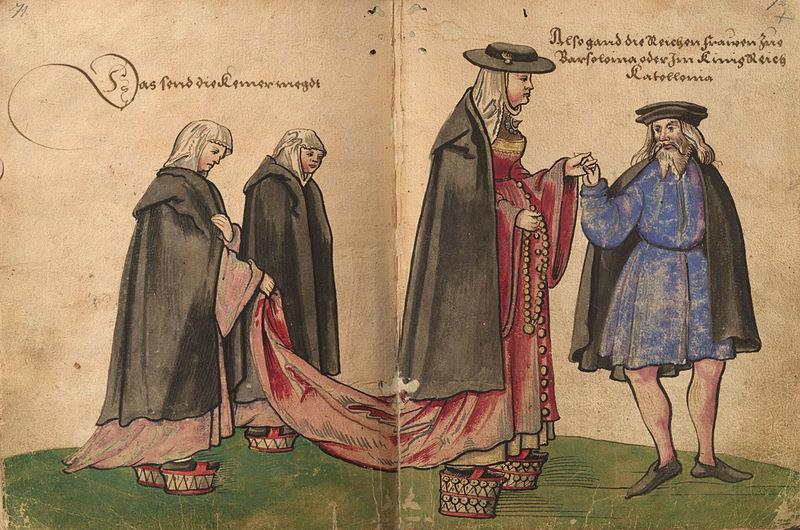 71
Das send die Kemer megdt
Also gand die Reichen frawen zue
Barsoloma oder Jm Künig Reich
Katolloma